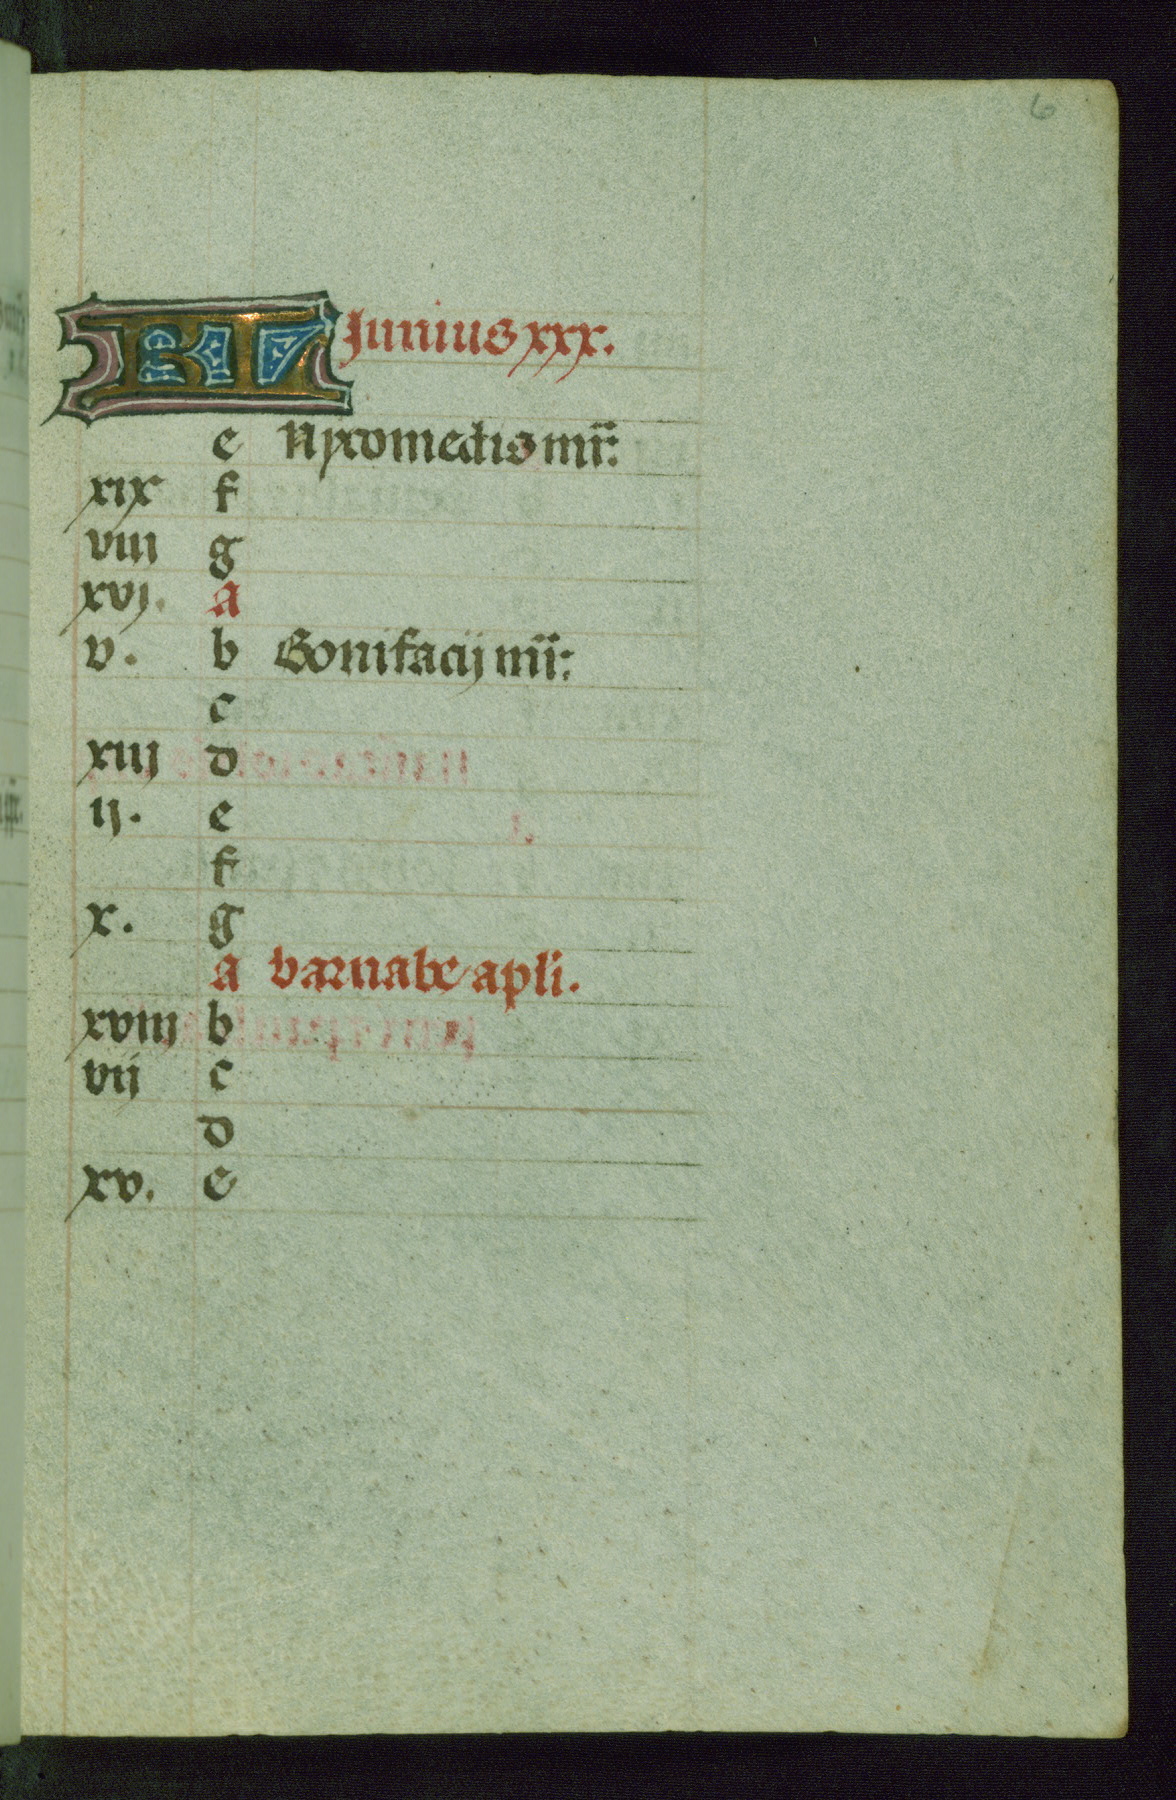 6
KL Junius xxx.
e Nycomedis mr̄:
xix f
viii g
xvj. a
v. b Bonifacij mr̄:
c
xiij d
ij. e
f
x. g
a barnabe apli.
xviij b
vij c
d
xv. e